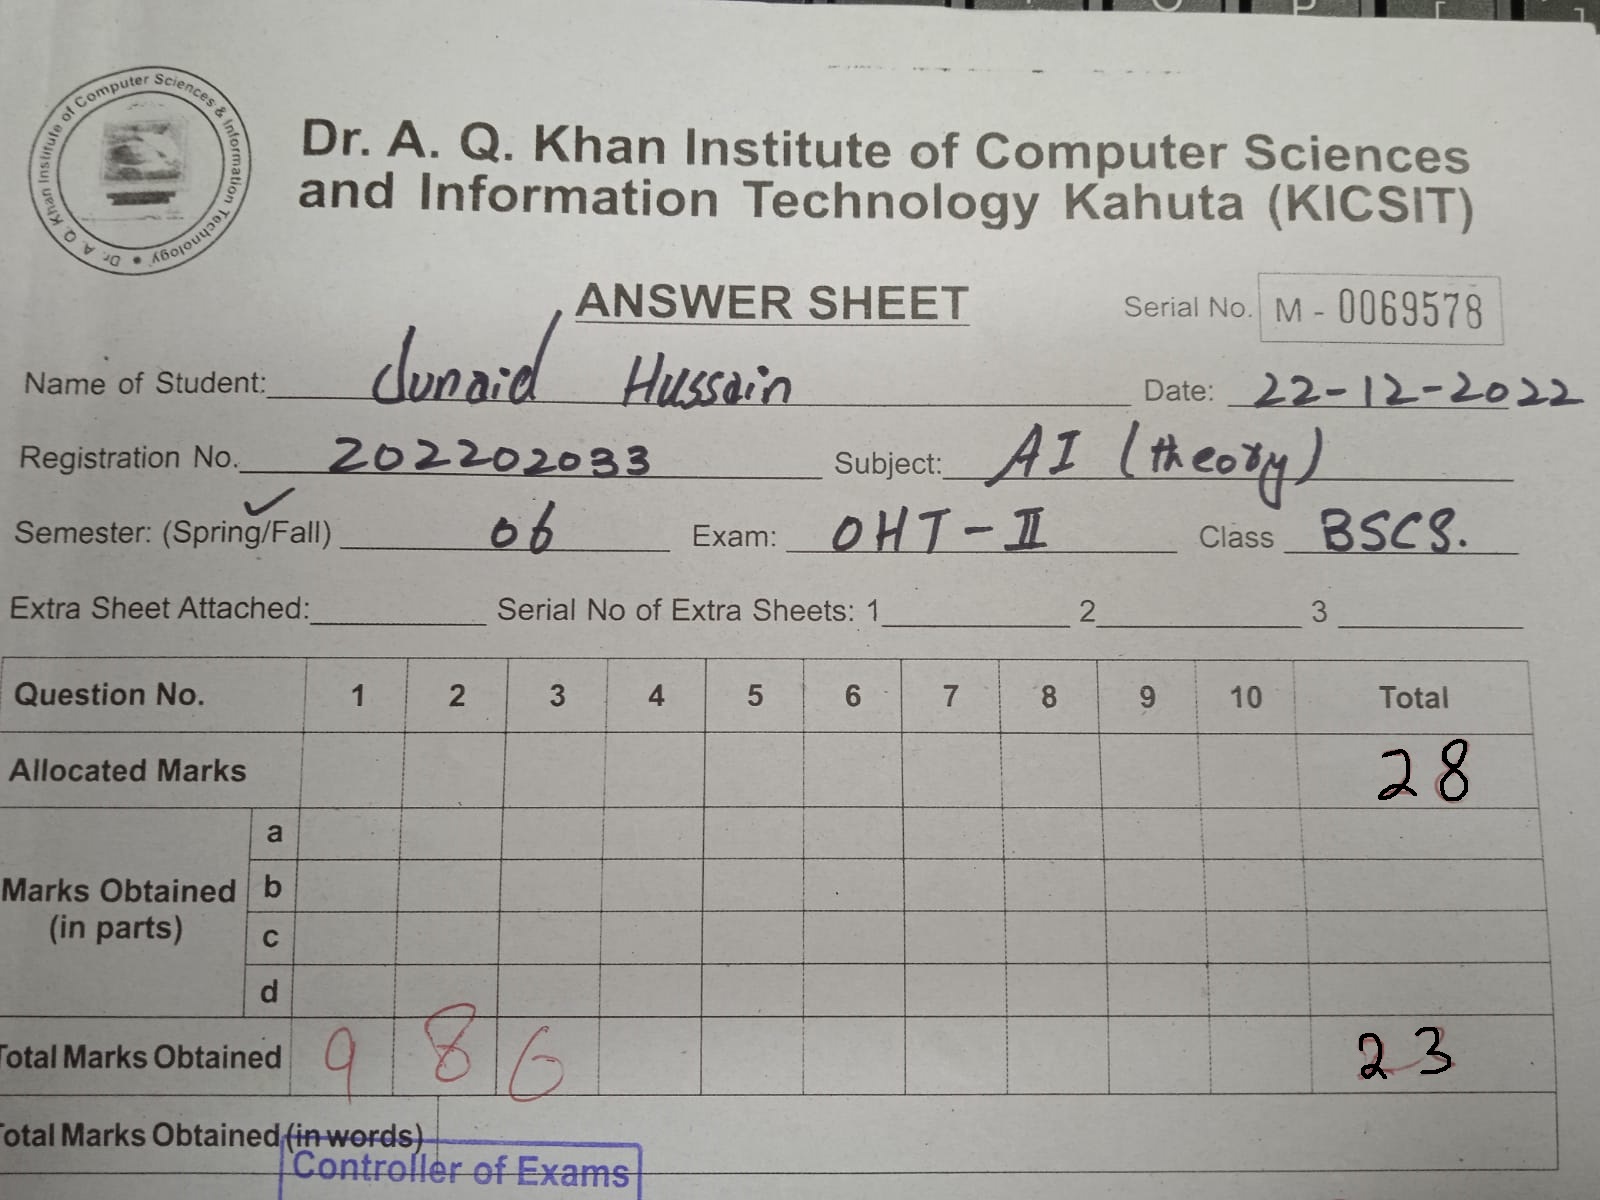 Dr. A. Q. Khan Institute of Computer Sciences & Information Technology
Dr. A. Q. Khan Institute of Computer Sciences
and Information Technology Kahuta (KICSIT)
ANSWER SHEET
Serial No. M - 0069578
Name of Student: Junaid Hussain Date: 22-12-2022
Registration No. 202202033 Subject: AI (theory)
Semester: (Spring/Fall) 06 Exam: OHT-II Class BSCS.
Extra Sheet Attached: Serial No of Extra Sheets: 1 2 3
Question No. 1 2 3 4 5 6 7 8 9 10 Total
Allocated Marks 28
Marks Obtained
(in parts)
a
b
c
d
Total Marks Obtained 9 8 6 23
Total Marks Obtained (in words)
Controller of Exams